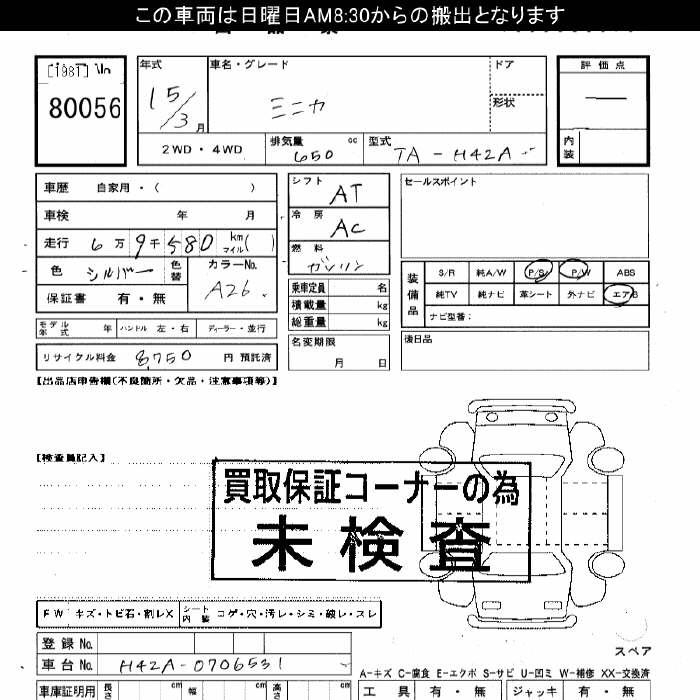 この車両は日曜日AM8:30からの搬出となります
80056
年式
15/3月
車名・グレード
ミニカ
ドア
形状
2WD・4WD
排気量 650 cc
型式 TA-H42A
評価点
内装
車歴 自家用・( )
車検 年 月
走行 6万9千580 km マイル( )
色 シルバー 色替
カラーNo. A26
保証書 有・無
モデル年式 年 ハンドル 左・右 ディーラー・並行
リサイクル料金 8,750 円 預託済
シフト AT
冷房 AC
燃料 ガソリン
乗車定員 名
積載量 kg
総重量 kg
名変期限
月 日
セールスポイント
装備品
S/R 純A/W P/S P/W ABS
純TV 純ナビ 革シート 外ナビ エアB
ナビ型番:
後日品
【出品店申告欄(不良箇所・欠品・注意事項等)】
【検査員記入】
買取保証コーナーの為
未検査
FW キズ・トビ石・割レX
シート内装 コゲ・穴・汚レ・シミ・破レ・スレ
登録No.
車台No. H42A-0706531
車庫証明用 長さ cm 幅 cm 高さ cm
スペア
A-キズ C-腐食 E-エクボ S-サビ U-凹ミ W-補修 XX-交換済
工具 有・無 ジャッキ 有・無